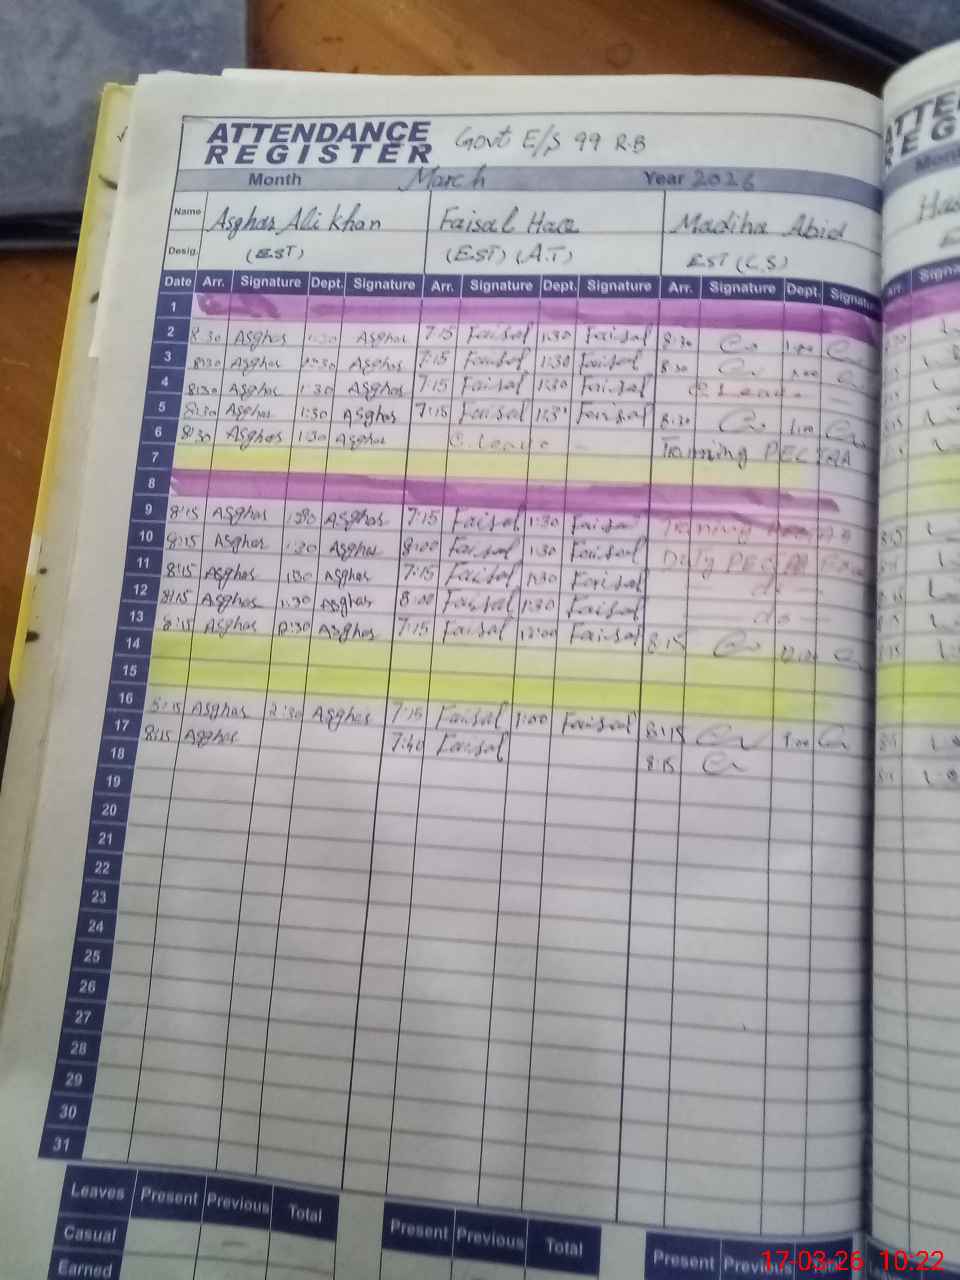 ATTENDANCE REGISTER Govt E/S 99 R.B
Month March Year 2026
Name Asghar Ali Khan Faisal Haq Madiha Abid
Desig. (EST) (EST) (A.T) EST (C.S)
Date Arr. Signature Dept. Signature Arr. Signature Dept. Signature Arr. Signature Dept. Signature
1
2 8:30 Asghar 1:30 Asghar 7:15 Faisal 1:30 Faisal 8:30
3 8:30 Asghar Asghar 7:15 Faisal 1:30 Faisal 8:30
4 8:30 Asghar 1:30 Asghar 7:15 Faisal 1:30 Faisal C. Leave
5 8:30 Asghar 1:30 Asghar 7:15 Faisal 1:30 Faisal 8:30
6 8:30 Asghar 1:30 Asghar C. Leave Training PECTAA
7
8
9 8:15 Asghar 1:30 Asghar 7:15 Faisal 1:30 Faisal Training
10 8:15 Asghar 1:30 Asghar 8:00 Faisal 1:30 Faisal Duty PECTAA
11 8:15 Asghar 1:30 Asghar 7:15 Faisal 1:30 Faisal do
12 8:15 Asghar 1:30 Asghar 8:00 Faisal 1:30 Faisal do
13 8:15 Asghar 12:30 Asghar 7:15 Faisal 12:00 Faisal 8:15 12:00
14
15
16 8:15 Asghar 2:30 Asghar 7:15 Faisal 1:00 Faisal 8:15
17 8:15 Asghar 7:40 Faisal 8:15
18
19
20
21
22
23
24
25
26
27
28
29
30
31
Leaves Present Previous Total Present Previous Total Present Previous
Casual
Earned
17-03-26 10:22